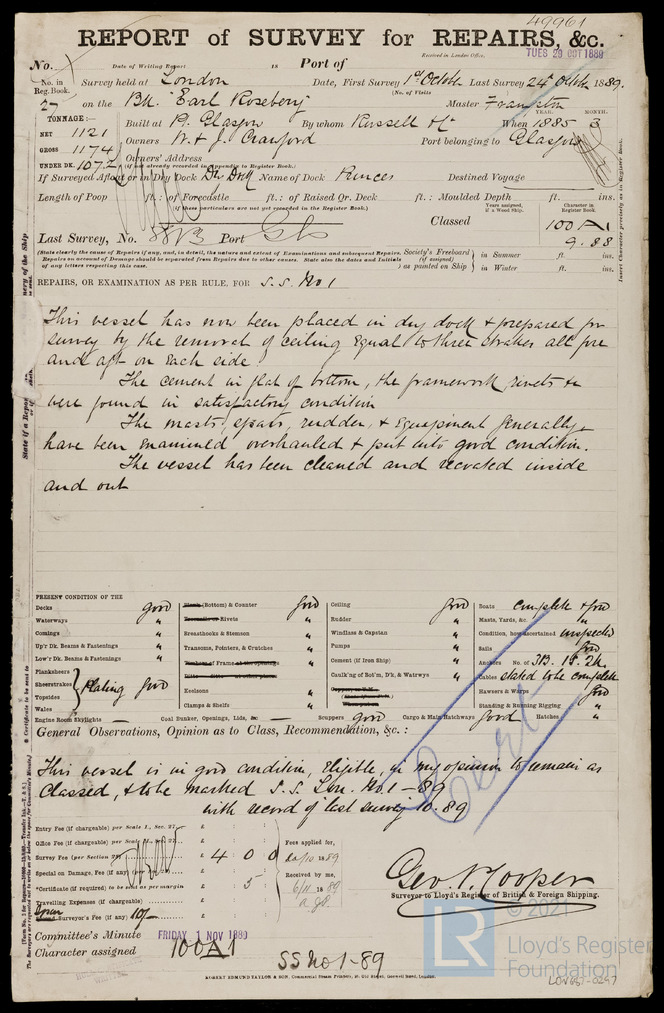 49961
REPORT of SURVEY for REPAIRS, &c.
No. Date of Writing Report 18 Port of Received in London Office. TUES 29 OCT 1889
No. in Reg. Book. Survey held at London Date, First Survey 1st October Last Survey 24th October 1889.
(No. of Visits
27 on the Bk. "Earl Rosebery" Master
TONNAGE:— YEAR. MONTH.
NET 1121 Built at P. Glasgow By whom Russell & Co When 1885 3
GROSS 1174 Owners W. & J. Crawford Port belonging to Glasgow
UNDER DK. 1072 Owners' Address
(if not already recorded in Appendix to Register Book.)
If Surveyed Afloat or in Dry Dock Dry Dock Name of Dock Princes Destined Voyage
Length of Poop ft.: of Forecastle ft.: of Raised Qr. Deck ft.: Moulded Depth ft. ins.
(if these particulars are not yet recorded in the Register Book.)
Years assigned, if a Wood Ship. Character in Register Book.
Classed 100 A1
Last Survey, No. Port Gls 9.88
(State clearly the cause of Repairs, if any, and, in detail, the nature and extent of Examinations and subsequent Repairs. Repairs on account of Damage should be separated from Repairs due to other causes. State also the dates and initials of any letters respecting this case.
Society's Freeboard (if assigned) as painted on Ship in Summer ft. ins.
in Winter ft. ins.
Insert Character precisely as in Register Book.
REPAIRS, OR EXAMINATION AS PER RULE, FOR S.S. No 1
This vessel has now been placed in dry dock & prepared for
survey by the removal of ceiling equal to three strakes all fore
and aft on each side.
The cement in flat of bottom, the framework, rivets &c
were found in satisfactory condition
The masts, spars, rudder, & equipment generally
have been examined overhauled & put into good condition.
The vessel has been cleaned and recoated inside
and out
PRESENT CONDITION OF THE
Decks good
Waterways "
Comings "
Up'r Dk. Beams & Fastenings "
Low'r Dk. Beams & Fastenings "
Planksheers
Sheerstrakes
Topsides
Wales
Plating good
Engine Room Skylights —
(Bottom) & Counter good
Rivets "
Breasthooks & Stemson "
Transoms, Pointers, & Crutches "
of Frame "
Keelsons "
Clamps & Shelfs "
Coal Bunker, Openings, Lids, &c. —
Ceiling good
Rudder "
Windlass & Capstan "
Pumps "
Cement (if Iron Ship) "
Caulk'ng of Bot'm, D'k, & Watrwys "
Scuppers good
Cargo & Main Hatchways good
Boats complete & good
Masts, Yards, &c. "
Condition, how ascertained inspected
Sails good
Anchors No. of 3B. 1S. 2K.
Cables stated to be complete
Hawsers & Warps good
Standing & Running Rigging "
Hatches "
General Observations, Opinion as to Class, Recommendation, &c.:
This vessel is in good condition, Eligible, in my opinion to remain as
classed, & to be marked S.S. Lon. No.1 – 89
with record of last survey 10.89
Cert
Entry Fee (if chargeable) per Scale 1., Sec. 27 £
Office Fee (if chargeable) per Scale 11., Sec. 27 £
Survey Fee (per Section 28) £ 4 0 0
Special on Damage, Fee (if any) £
*Certificate (if required) to be sent as per margin £ 5
Travelling Expenses (if chargeable) £
Surveyor's Fee (if any) 10/- £
Fees applied for,
20/10 1889
Received by me,
6/11 1889
Geo. P. Cooper
Surveyor to Lloyd's Register of British & Foreign Shipping.
Committee's Minute FRIDAY 1 NOV 1889
Character assigned 100A1
SS No 1-89
ROBERT EDMUND TAYLOR & SON, Commercial Steam Printers, 19, Old Street, Goswell Road, London.
© 2021
LR
Lloyd's Register
Foundation
LON687-0297